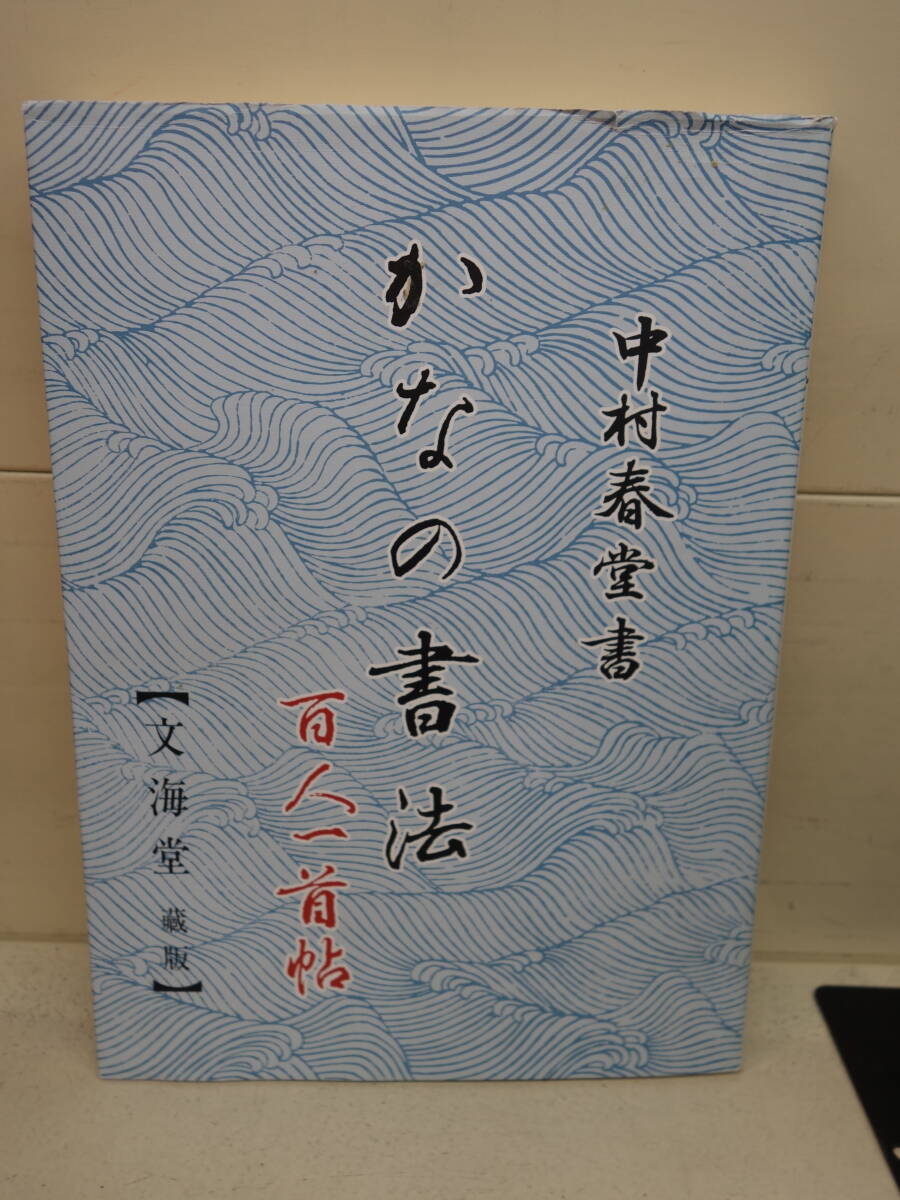 中村春堂書
かなの書法
百人一首帖
【文海堂 蔵版】